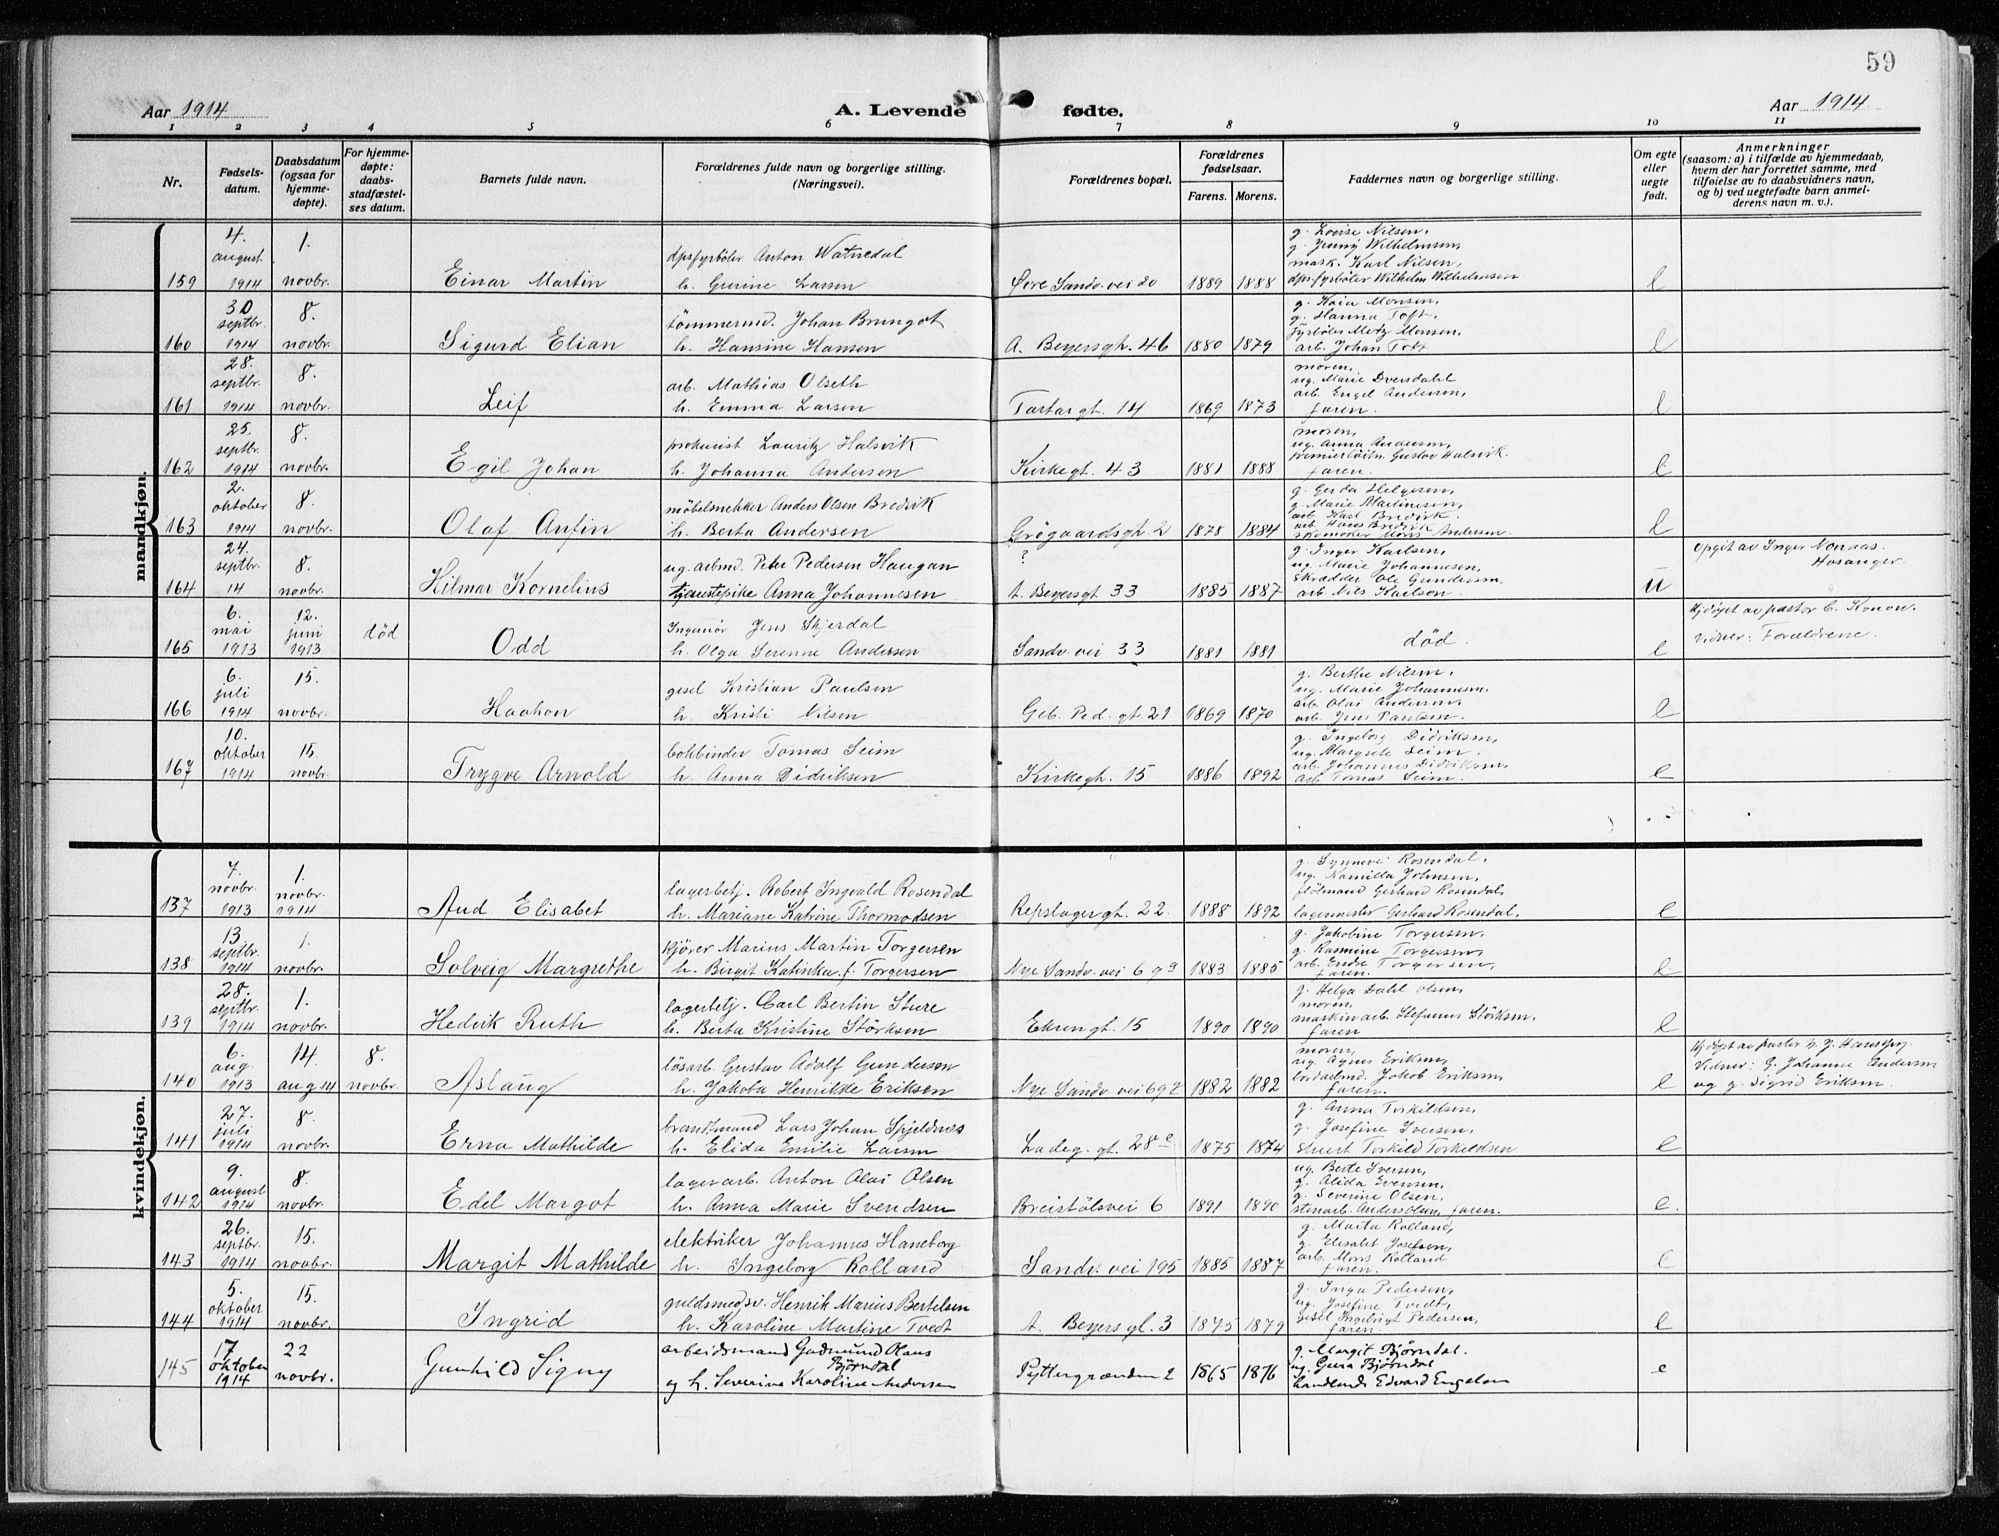 59
Aar 1914
A. Levende fødte.
Aar 1914
1 2 3 4 5 6 7 8 9 10 11
Nr.
Fødsels-
datum.
Daabsdatum
(ogsaa for
hjemme-
døpte).
For hjemme-
døpte:
daabs-
stadfæstel-
ses datum.
Barnets fulde navn.
Forældrenes fulde navn og borgerlige stilling.
(Næringsvei).
Forældrenes bopæl.
Forældrenes
fødselsaar.
Farens. Morens.
Faddernes navn og borgerlige stilling.
Om egte
eller
uegte
født.
Anmerkninger
(saasom: a) i tilfælde av hjemmedaab,
hvem der har forrettet samme, med
tilføielse av to daabsvidners navn,
og b) ved uegtefødte barn anmel-
derens navn m. v.).
mandkjøn.
159
4.
august
1914
1.
novbr.
Einar Martin
dpsfyrbøter Anton Watnedal
h. Gurine Larsen
Øvre Sandv. vei 20
1889 1888
g. Lovise Nilsen,
g. Jenny Wilhelmsen,
mask. Karl Nilsen,
dpsfyrbøter Wilhelm Wilhelmsen
e
160
30
septbr.
1914
8.
novbr.
Sigurd Elian
tømmermd. Johan Brungot
h. Hansine Hansen
A. Beyersgt. 46
1880 1879
g. Kaia Monsen,
g. Hanna Toft,
fyrbøter Metz Monsen,
arb. Johan Toft
e
161
28.
septbr.
1914
8.
novbr.
Leif
arb. Mathias Olseth
h. Emma Larsen
Tartargt. 14
1869 1873
moren,
ug. Marie Dversdahl
arb. Engel Andersen,
faren.
e
162
25.
septbr.
1914
8.
novbr.
Egil Johan
prokurist Lauritz Halsvik
h. Johanna Andersen
Kirkegt. 43
1881 1888
moren,
ug. Anna Andersen,
premierløitn. Gustav Halsvik.
faren.
e
163
2.
oktober
1914
8.
novbr.
Olaf Anfin
møbelsnekker Anders Olsen Bredvik
h. Berta Andersen
Grøgaardsgt. 2
1878 1884
g. Gerda Helgesen,
g. Marie Martinussen,
arb. Karl Bredvik
arb. Hans Bredvik
skomaker Andersen
e
164
24.
septbr.
14
8.
novbr.
Hilmar Kornelius
ug. arbmd. Peter Pedersen Haugan
tjenestepike Anna Johannesen
?
A. Beyersgt 33
1885 1887
g. Inger Karlsen,
ug. Marie Johannesen,
skrædder Ole Gundersen,
arb. Nils Karlson.
u
opgit av Inger
Hosanger.
165
6.
mai
1913
12.
juni
1913
død
Odd
Ingeniør Jens Skjerdal
h. Olga Serenne Andersen
Sandv. vei 33
1881 1881
død.
e
hjdøpt av pastor C. Konow.
vidner: Forældrene.
166
6.
juli
1914
15.
novbr.
Haakon
gesel Kristian Paulsen
h. Kristi Nilsen
Geb. Ped. gt. 21
1869 1870
g. Berthe Nilsen,
ug. Marie Johannesen,
arb. Olai Andersen,
arb. Jens Paulsen.
e
167
10.
oktober
1914
15.
novbr.
Trygve Arnold
bokbinder Tomas Seim
h. Anna Didriksen
Kirkegt. 15
1886 1892
g. Ingeborg Didriksen,
ug. Margrete Seim.
arb. Johannes Didriksen
arb. Tomas Seim.
e
kvindekjøn.
137
7.
novbr.
1913
1.
novbr.
1914
Aud Elisabet
lagerbetj. Robert Ingvald Rosendal
h. Mariane Katrine Thormodsen
Repslagergt. 22.
1888 1892
g. Synnevi Rosendal,
ug. Kamilla Johnsen,
flötmand Gerhard Rosendal,
lagermester Gerhard Rosendal.
e
138
13
septbr.
1914
1.
novbr.
Solveig Margrethe
kjører Marius Martin Torgersen
h. Birgit Katinka, f. Torgersen
Nye Sandv. vei 69a
1883 1885
g. Jakobine Torgersen,
g. Rasmine Torgersen,
arb. Endre Torgersen,
faren.
e
139
28.
septbr.
1914
1.
novbr.
Hedvik Ruth
lagerbetj. Carl Bertin Sture
h. Berta Kristine Størksen
Ekrengt. 15
1890 1890
g. Helga Dahl Olsen,
moren,
maskin arb. Stefanus Størksen,
faren
e
140
6.
aug.
1913
14.
aug 14
8.
novbr.
Aslaug
løsarb. Gustav Adolf Gundersen
h. Jakoba Henrikke Eriksen
Nye Sandv. vei 69
1882 1882
moren,
ug. Agnes Eriksen,
Jakob Eriksen,
faren.
e
hjdøpt av pastor
Vidner: G. Johanne Andersen
og g. Sigrid Eriksen.
141
27.
juli
1914
8.
novbr.
Erna Mathilde
brandtmand Lars Johan Spjeldnes
h. Elida Emilie Larsen
Ladeg. gt. 28e
1875 1874
g. Anna Torkildsen,
g. Josefine Iversen,
Stuert Torkild Torkildsen
e
142
9.
august
1914
8.
novbr.
Edel Margot
lagerarb. Anton Olai Olsen
h. Anna Marie Svendsen
Breistølsvei 6
1891 1890
ug. Berte Iversen,
g. Alida Evensen,
g. Severine Olsen,
stenarb. Anders Olsen, faren.
e.
143
26.
septbr.
1914
15.
novbr.
Margit Mathilde
elektriker Johannes Haneborg
h. Ingeborg Rolland
Sandv. vei 195
1885 1887
g. Marta Rolland,
g. Elisabet Josefsen,
arb. Mons Rolland
faren.
e
144
5.
oktober
1914
15.
novbr.
Ingrid
guldsmedsv. Henrik Marius Bertelsen
h. Karoline Martine Tvedt
A. Beyers gt. 3
1875 1879
g. Inga Pedersen,
ug. Josefine Tvedt,
gesel Ingebrigt Pedersen,
faren.
e
145
17
oktober
1914
22
novbr.
Gunhild Signy
arbeidsmand Gudmund Olaus
Bjørndal
og h. Severine Karoline Andersen
Pyttergrænden 2
1865 1876
g. Margit Bjørndal.
ug. Gura Bjørndal
handlende Edvard Engelsen
e